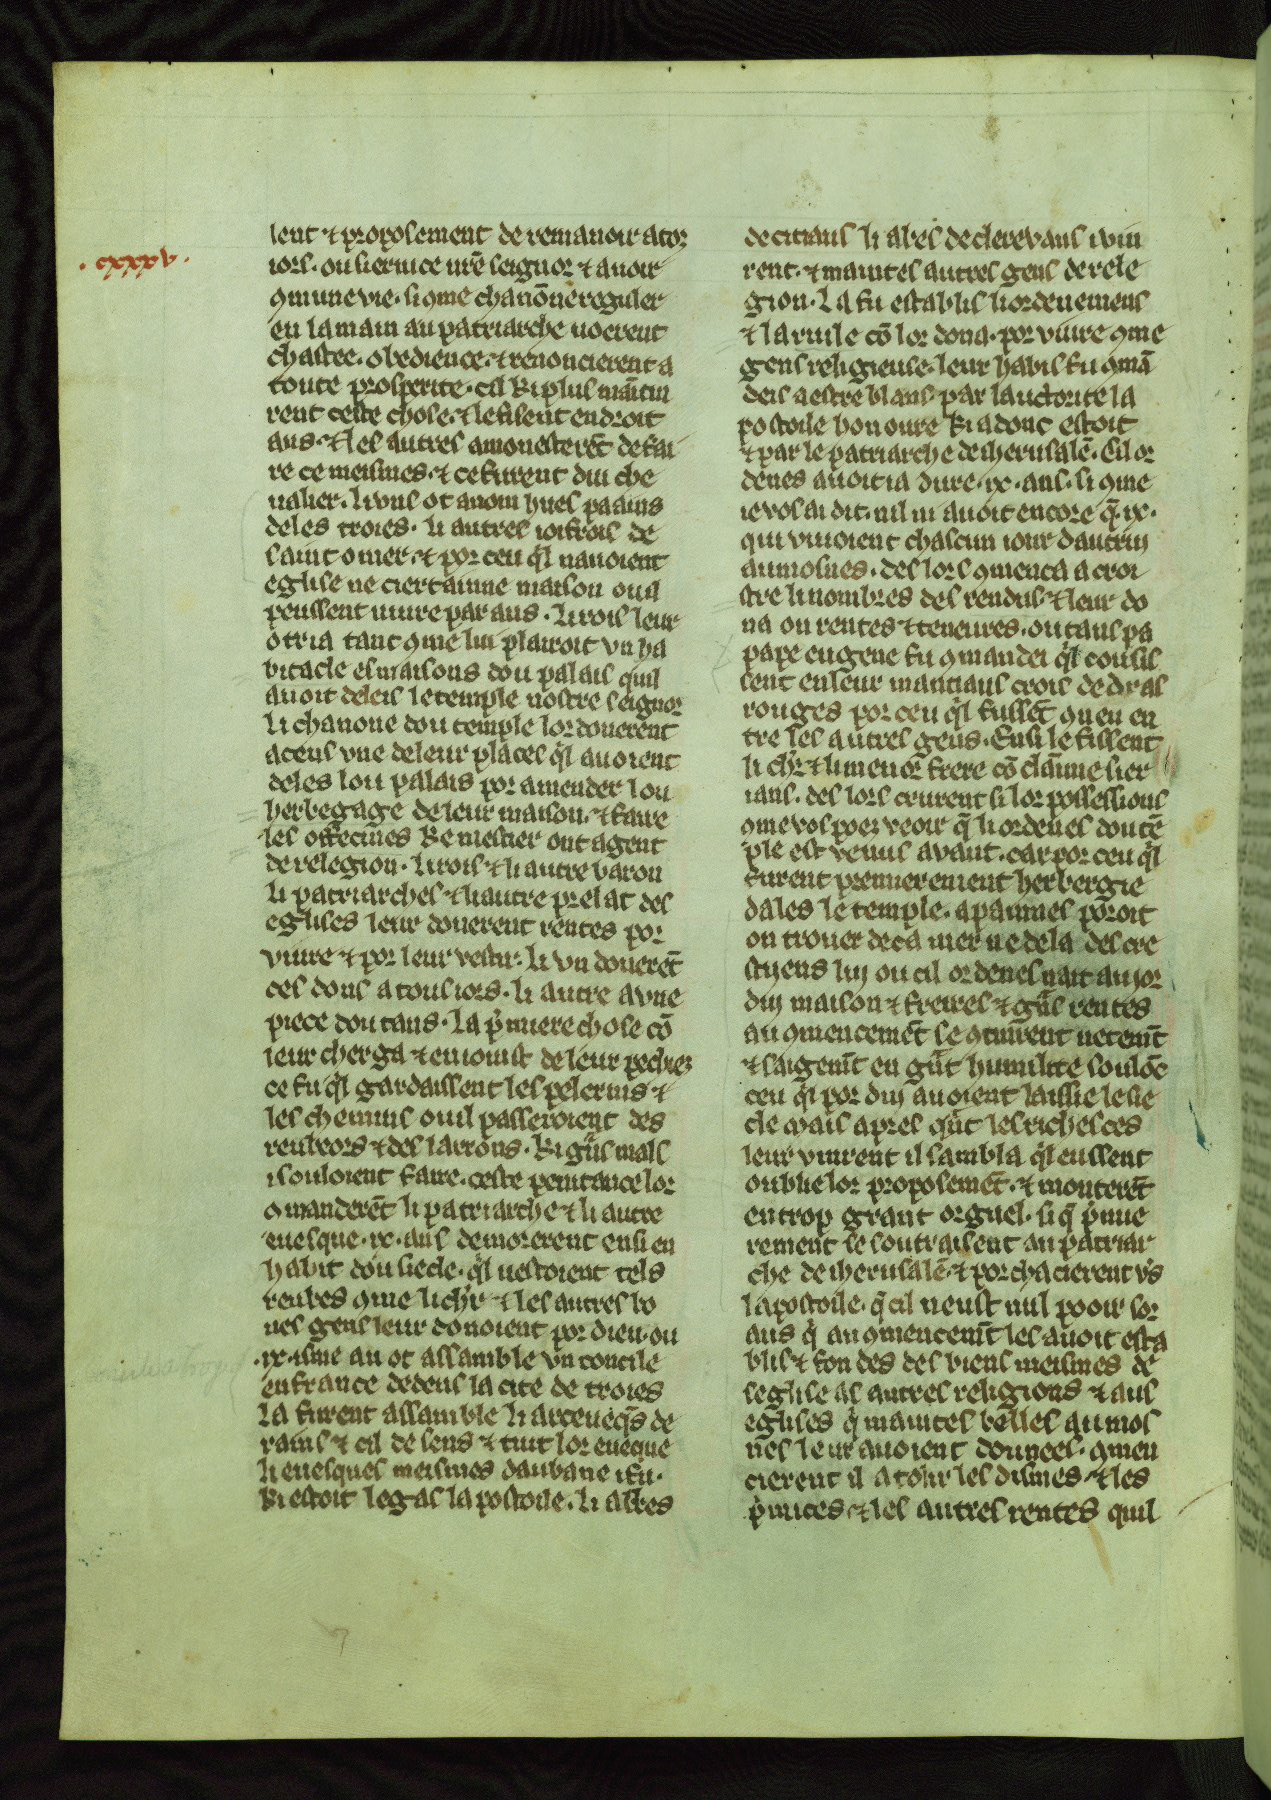 .cxxxv.
sent ⁊ proposement de remanoir a toz
iors. ou seruice nr̃e seignor ⁊ auoir
9mune vie. si 9me chanõne reguler
en la main au patriarche uoerent
chastee. obedience. ⁊ renoncierent a
toute prosperite. cil ki plus mainti
rent ceste chose. ⁊ le fisent endroit
aus. ⁊ les autres amonesterẽt de fai
re ce meismes. ⁊ ce furent dui che
ualier. li vns ot a nom hues paains
deles troies. li autres ioifrois de
saint omer. ⁊ por ceu q̃l nauoient
eglise ne ciertainne maison ou il
peussent uiure par aus. li rois leur
otria tant 9me lui plairoit vn ha
bitacle es maisons dou palais quil
auoit deleis le temple nostre seignor
li chanone dou temple lor donerent
a ceus vne de leur places q̃l auoient
deles lou palais por amender lou
herbegage de leur maison. ⁊ faire
les offecines ke mestier ont a gent
de relegion. li rois ⁊ li autre baron
li patriarches ⁊ li autre prelat des
eglises leur donerent rentes por
viure ⁊ por leur vestir. li vn donerẽt
ces dons a tous iors. li autre a vne
piece dou tans. la p̃miere chose cõ
leur cherga ⁊ enioinst de leur pechiez
ce fu q̃l gardaissent les pelerins ⁊
les chemins ou il passeroient des
reubeors ⁊ des larrons. ki gñs mals
i souloient faire. ceste penitance lor
9manderẽt li patriarche ⁊ li autre
euesque. ix. ans demorerent ensi en
habit dou siecle. q̃l uestoient tels
reubes 9me li chr̃ ⁊ les autres bo
nes gens leur donoient por dieu. ou
.ix. isme an ot assamble vn concile
en france dedens la cite de troies
la furent assamble li arceueq̃s de
rains ⁊ cil de sens ⁊ tuit lor eueque
li euesques meismes daubane i fu.
ki estoit legas lapostoile. li abbes
de citiaus li abes de clerevaus i vin
rent. ⁊ maintes autres gens de rele
gion. La fu establis li ordenemens
⁊ la riule cõ lor dona. por viure 9me
gens religieuse. leur habis fu 9mã
deis a estre blans par lauctorite la
postoile honoure ki adonc estoit
⁊ par le patriarche de iherusalẽ. Cil or
denes auoit ia dure. ix. ans. si 9me
ie vos ai dit. nil ni auoit encore q̃ ix.
qui viuoient chascun iour dautrui
aumosnes. des lors 9menca a croi
stre li nombres des rendus. ⁊ leur do
na on rentes ⁊ teneures. ou tans pa
pape eugene fu 9mandei q̃l cousis
sent en leur mantiaus crois de dras
rouges por ceu q̃l fussẽt 9neu en
tre les autres gens. Ensi le fissent
li chr̃. ⁊ li menor frere cõ claime sier
ians. des lors crurent si lor possessions
9me vos poez veoir q̃ li ordenes dou tẽ
ple est venus avant. car por ceu q̃l
furent premierement herbergie
dales le temple. a painnes poroit
on trouer deca mer ne dela des cre
styens lui ou cil ordenes nait au ior
dui maison ⁊ freires ⁊ gñs rentes
au 9mencemẽt se 9tinrent netemẽt
⁊ saigemẽt en gñt humilite soulõc
ceu q̃l por diu auoient laissie le sie
cle mais apres q̃nt les richesces
leur vinrent il sambla q̃l eussent
oublie lor proposemẽt. ⁊ monterẽt
en trop grant orguel. si q̃ p̃mie
rement se soutraisent au patriar
che de iherusalẽ. ⁊ porchacierent v̾s
lapostoile. q̃ cil neust nul pooir sor
aus q̃ au 9mencemẽt les auoit esta
blis ⁊ fondes des biens meismes de
leglise as autres religions ⁊ aus
eglises q̃ maintes belles aumos
nes leur auoient donnees. 9men
cierent il a tolir les dismes. ⁊ les
p̃mices. ⁊ les autres rentes quil